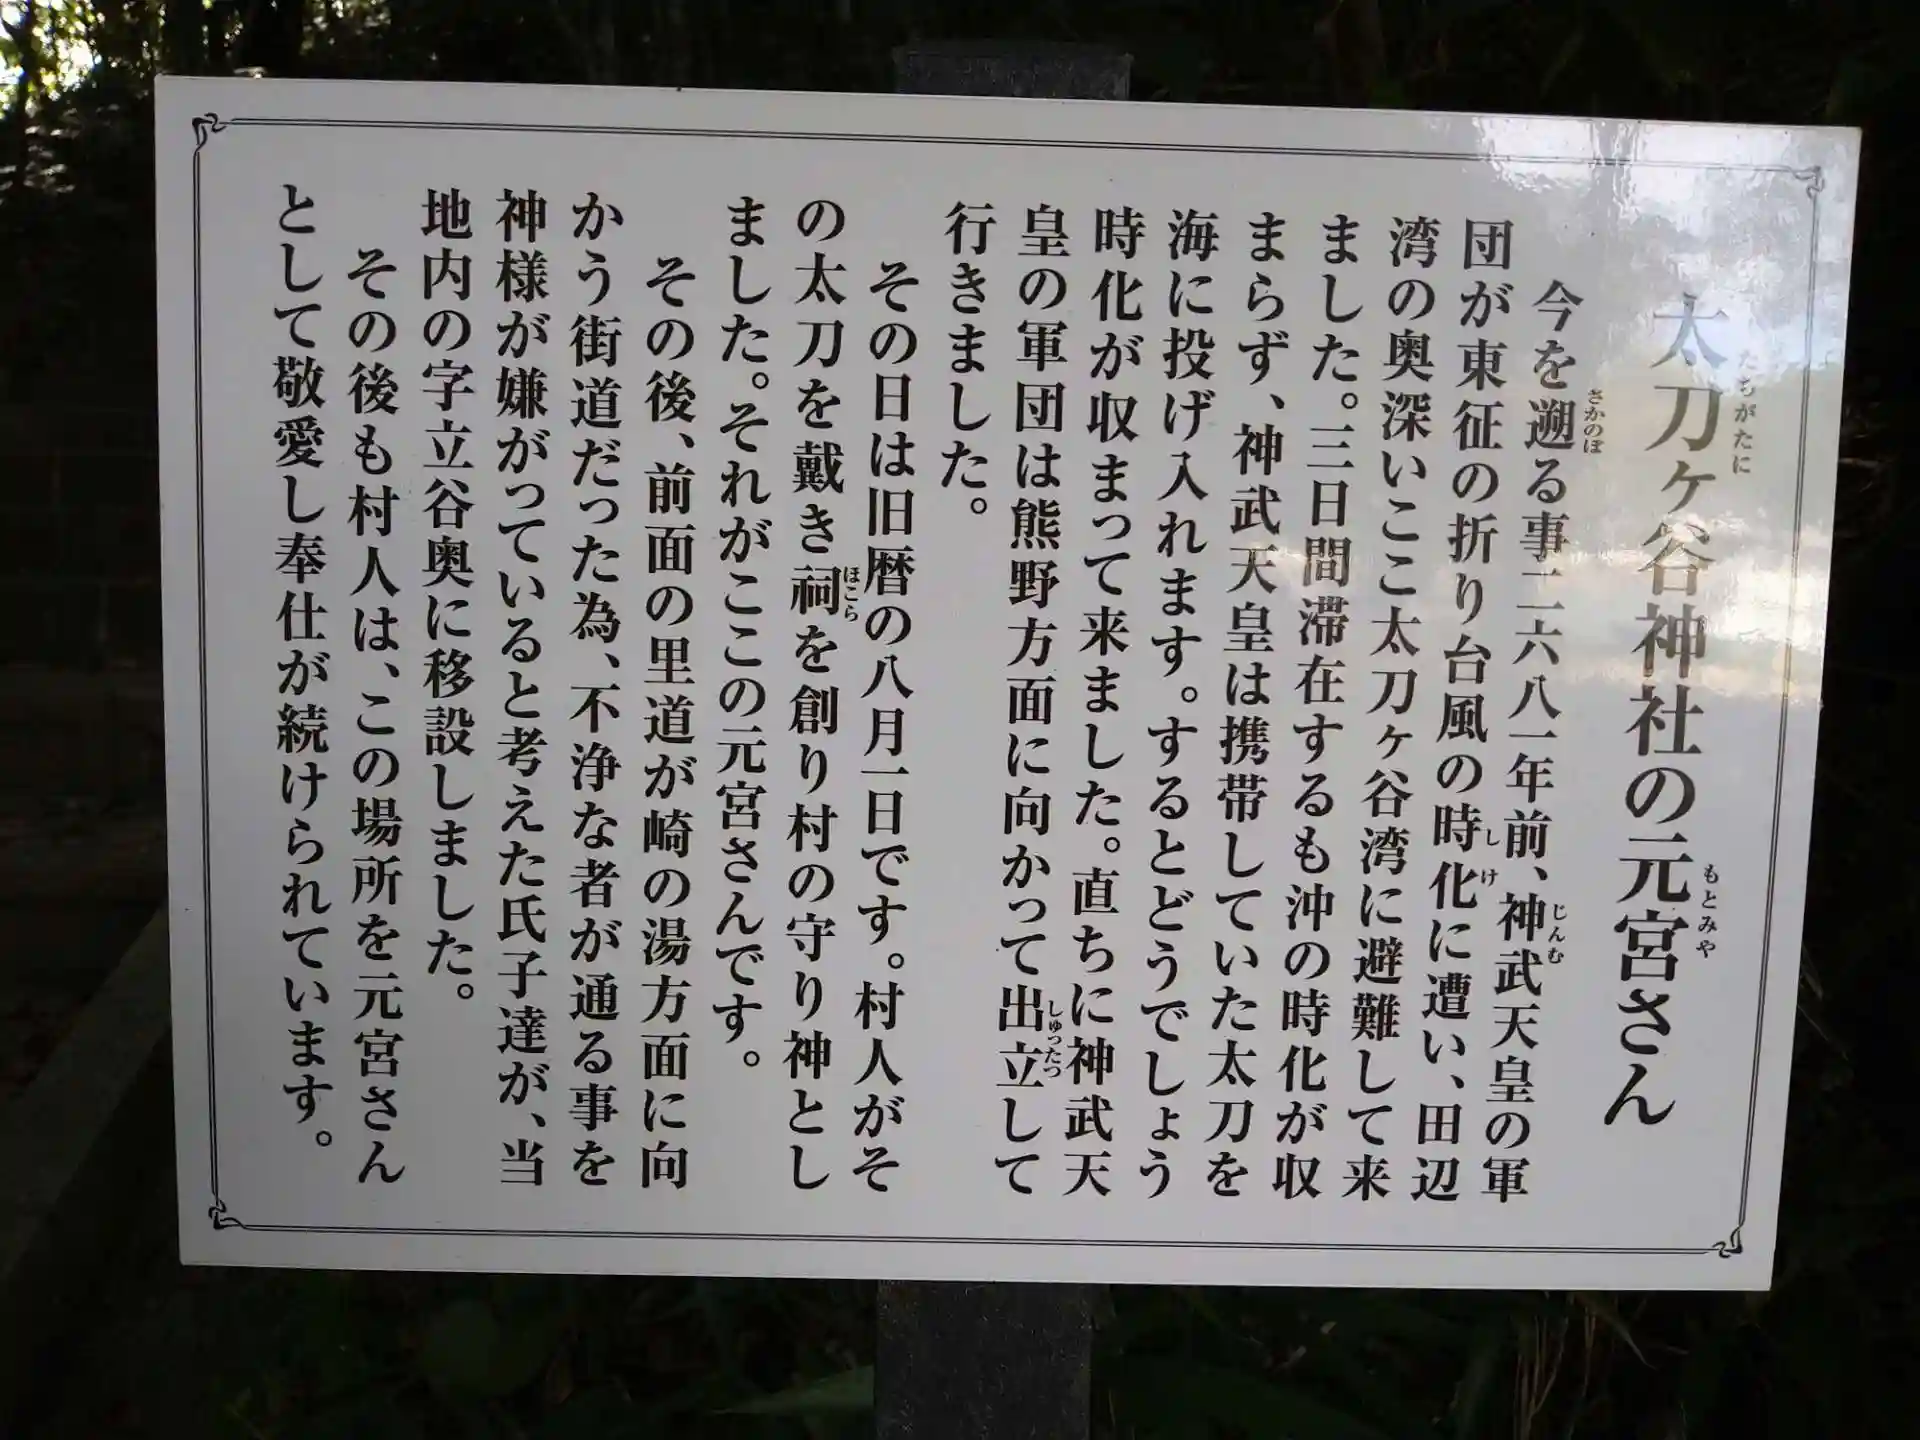 太刀ヶ谷神社の元宮さん
たちがたに
もとみや
今を遡る事二六八一年前、神武天皇の軍
さかのぼ
じんむ
団が東征の折り台風の時化に遭い、田辺
しけ
湾の奥深いここ太刀ヶ谷湾に避難して来
ました。三日間滞在するも沖の時化が収
まらず、神武天皇は携帯していた太刀を
海に投げ入れます。するとどうでしょう
時化が収まって来ました。直ちに神武天
皇の軍団は熊野方面に向かって出立して
しゅったつ
行きました。
その日は旧暦の八月一日です。村人がそ
の太刀を戴き祠を創り村の守り神とし
ほこら
ました。それがここの元宮さんです。
その後、前面の里道が崎の湯方面に向
かう街道だった為、不浄な者が通る事を
神様が嫌がっていると考えた氏子達が、当
地内の字立谷奥に移設しました。
その後も村人は、この場所を元宮さん
として敬愛し奉仕が続けられています。